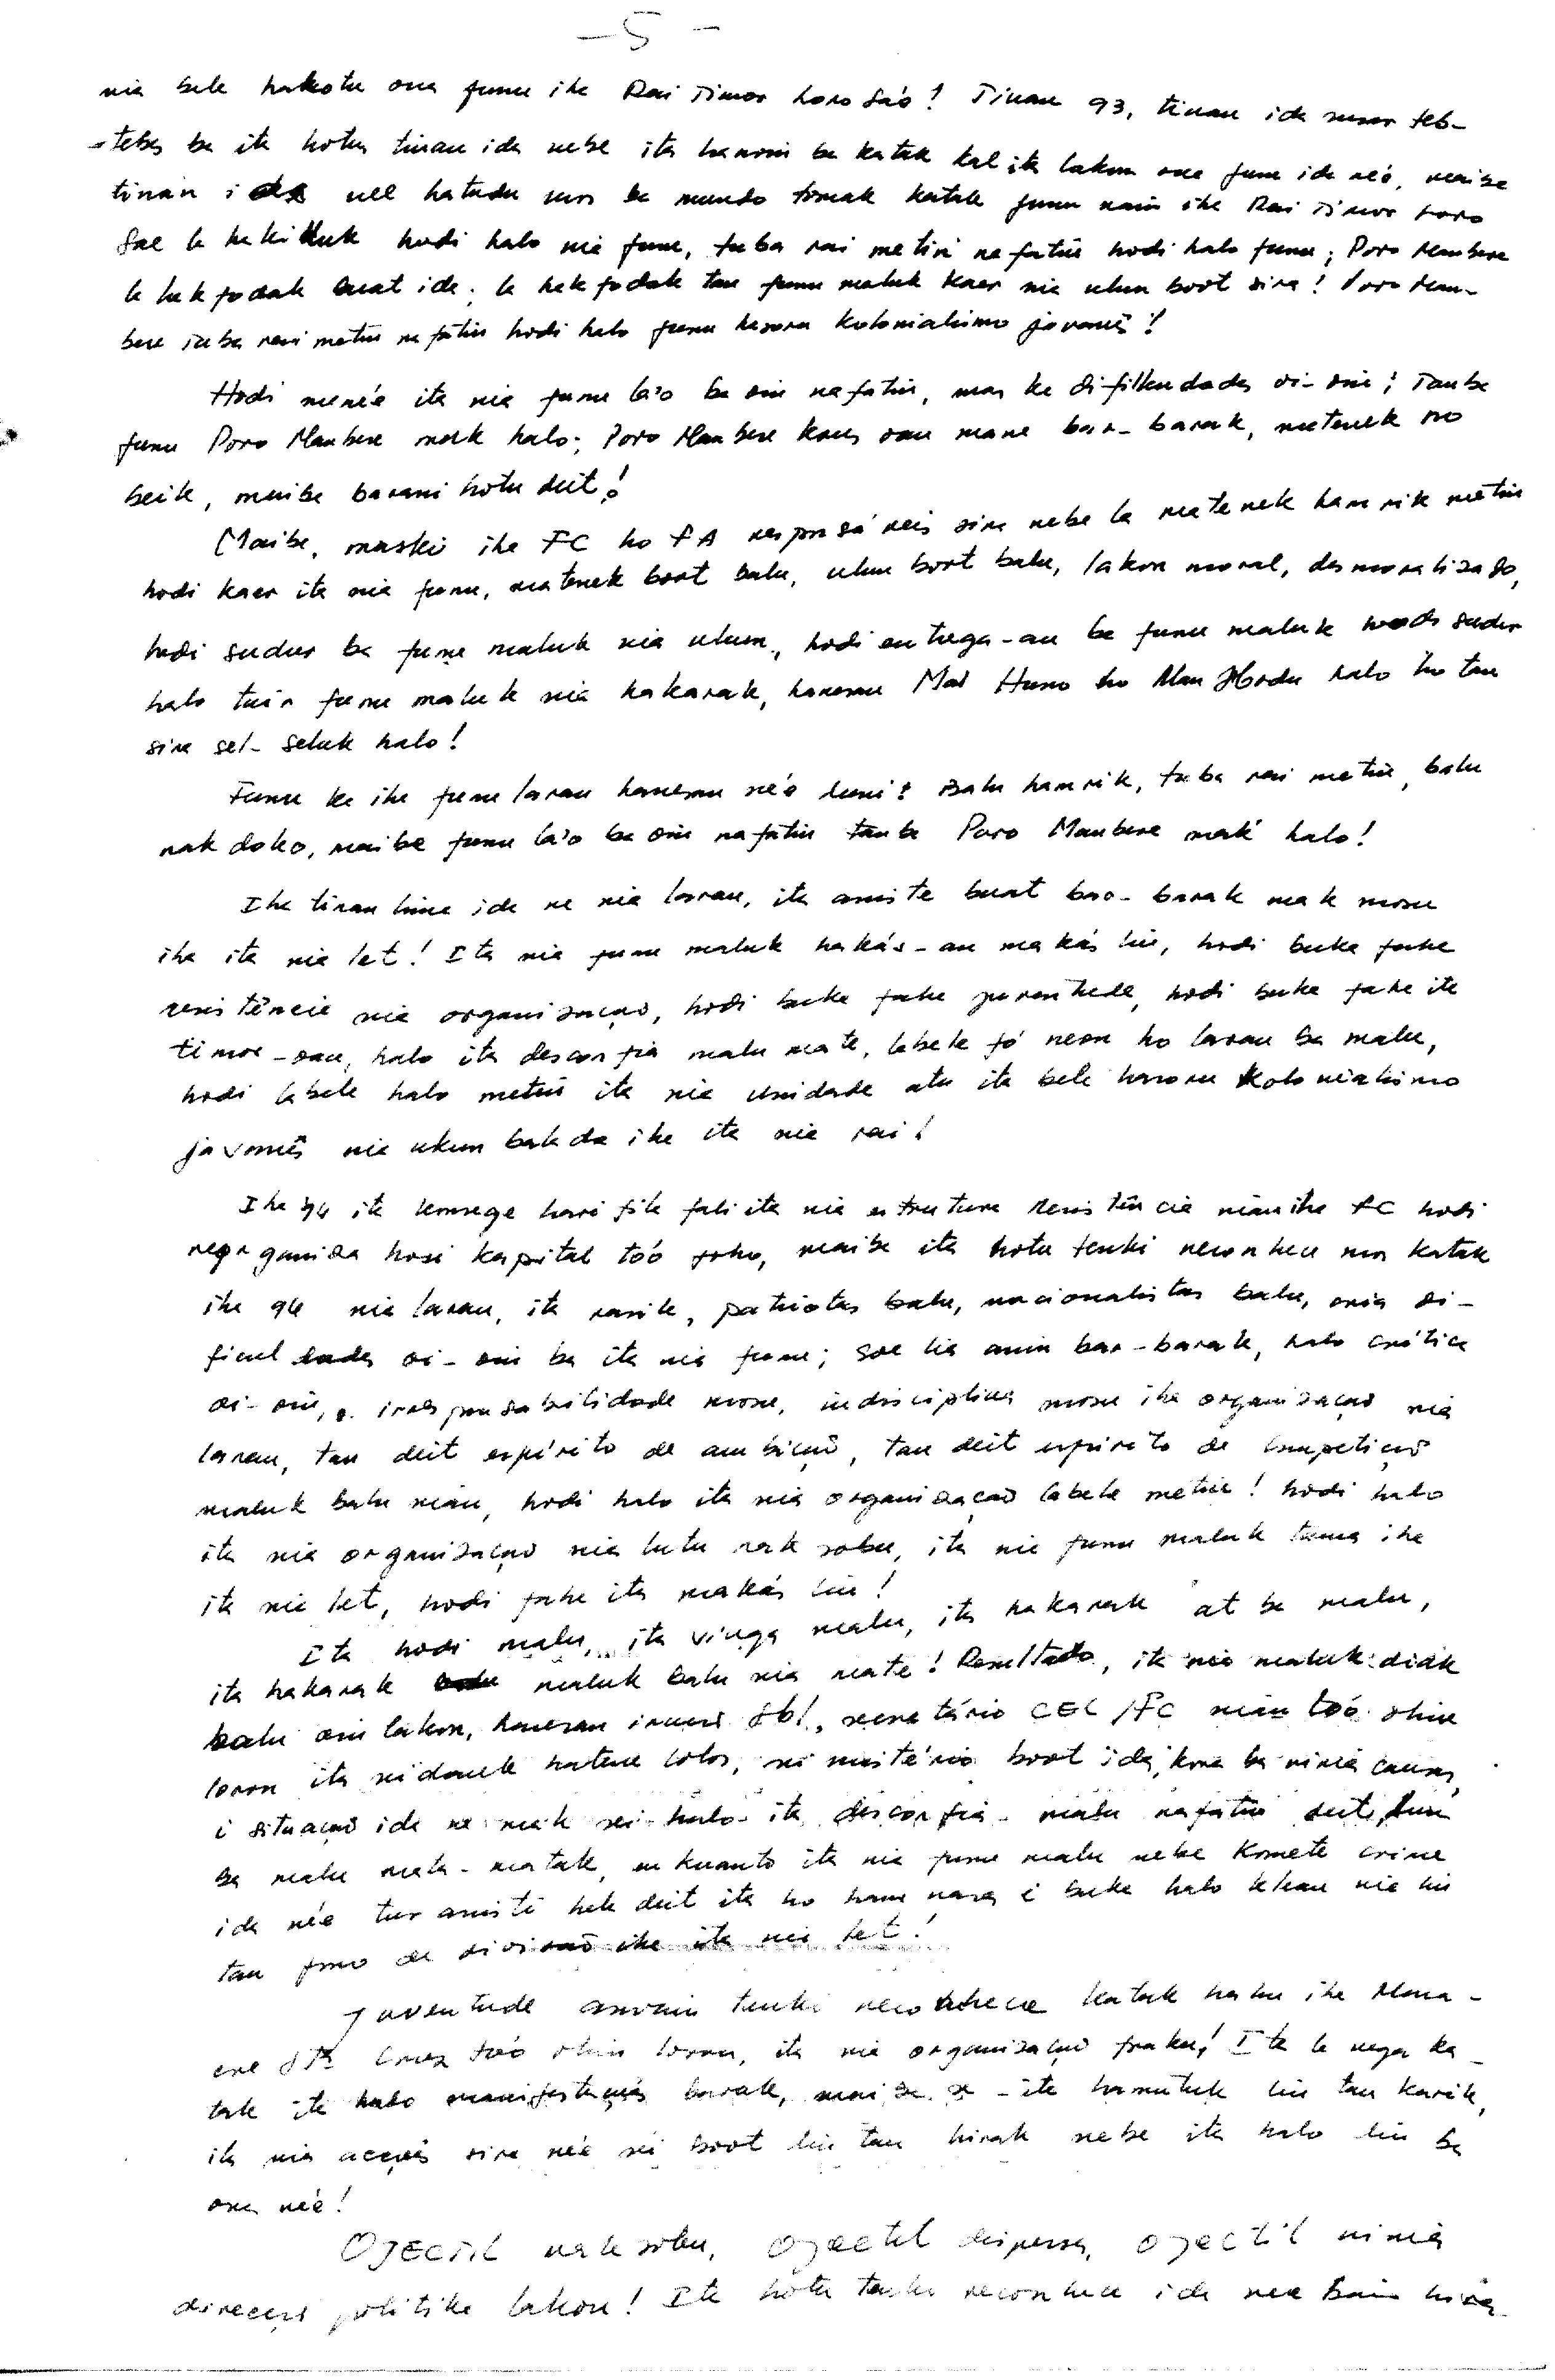 - 5 -
nia bele hakotu ona funu ihe Rai Timor Loro Sa'e! Tinan 93, tinan ida susar teb-
-tebes ba ita hotu, tinan ida nebe ita hanoin ba katak kal ita lakon ona funu ida ne'e, maibe
tinan ida ne'e hatudu mos ba mundo tomak katak funu nain ihe Rai Timor Loro
Sae la hakiduk hodi halo nia funu, tuba rai metin nafatin hodi halo funu; Povo Maubere
la hakfodak buat ida; la hakfodak tan funu maluk kaer nia ulun boot sira! Povo Mau-
bere tuba rai metin nafatin hodi halo funu hasoru kolonialismo javanês!
Hodi nune'e ita nia funu la'o ba oin nafatin, mas ho difikuldades oi-oin; Tanba
funu Povo Maubere mak halo; Povo Maubere kaer oan mane bar-barak, matenek no
beik, maibe barani hotu deit!
Maibe, maski ihe FC ho FA responsáveis sira nebe la matenek hamrik metin
hodi kaer ita nia funu, matenek boot balu, ulun boot balu, lakon moral, desmoralizado,
hodi sudur ba funu maluk nia ulun, hodi entrega-an ba funu maluk hodi sudur
halo tuir funu maluk nia hakarak, hanesan Mau Huno ho Mau Hodu halo ho tan
sira sel-seluk halo!
Funu ke ihe funu laran hanesan ne'e duni! Balu hamrik, tuba rai metin, balu
nakdoko, maibe funu la'o ba oin nafatin tanba Povo Maubere mak halo!
Ihe tinan lima ida ne nia laran, ita asiste buat bar-barak mak mosu
ihe ita nia let! Ita nia funu maluk hakás-an makás liu, hodi buka fahe
resistência nia organização, hodi buka fahe juventude, hodi buka fahe ita
timor-oan, halo ita desconfia malu mate, labele fó neon ho laran ba malu,
hodi labele halo metin ita nia unidade atu ita bele hasoru kolonialismo
javanês nia ukun bakda ihe ita nia rai!
Ihe 94 ita konsege hari fila fali ita nia estrutura resistência nian ihe FC hodi
reorganiza hosi kapital to'o foho, maibe ita hotu tenki reconhece mos katak
ihe 94 nia laran, ita rasik, patriotas balu, nacionalistas balu, oria di-
ficuldades oi-oin ba ita nia funu; soe lia anin bar-barak, halo crítica
oi-oin, irresponsabilidade mosu, indisciplina mosu ihe organização nia
laran, tan deit espírito de ambição, tan deit espírito de competição
maluk balu nian, hodi halo ita nia organização labele metin! hodi halo
ita nia organização nia lutu naksobu, ita nia funu maluk tama ihe
ita nia let, hodi fahe ita makás liu!
Ita hodi malu, ita vinga malu, ita hakarak at ba malu,
ita hakarak maluk balu nia mate! Resultado, ita nia maluk diak
balu oin lakon, hanesan irmão Sb1, secretário CEL/FC nian to'o ohin
loron ita sidauk hatene lolos, sei mistério boot ida, kona ba ninia causa,
i situação ida ne mak sei halo ita desconfia-malu nafatin deit, duni
ba malu mata-matak, enkuanto ita nia funu malu nebe komete crime
ida ne'e tur asiste hela deit ita ho hamnasa i buka halo klean nia liu
tan foco de divisão ihe ita nia let!
Juventude aswain tenki reconhece katak hahu ihe Masa-
cre Sta Cruz to'o ohin loron, ita nia organização fraku! Ita la nega ka-
tak ita halo manifestações barak, maibe se ita hamutuk liu tan karik,
ita nia acções sira ne'e sei boot liu tan hirak nebe ita halo liu ba
ona ne'e!
OJECTIL naksobu, Ojectil dispersa, Ojectil ninia
direcção politika lakon! Ita hotu tenki reconhece ida nee